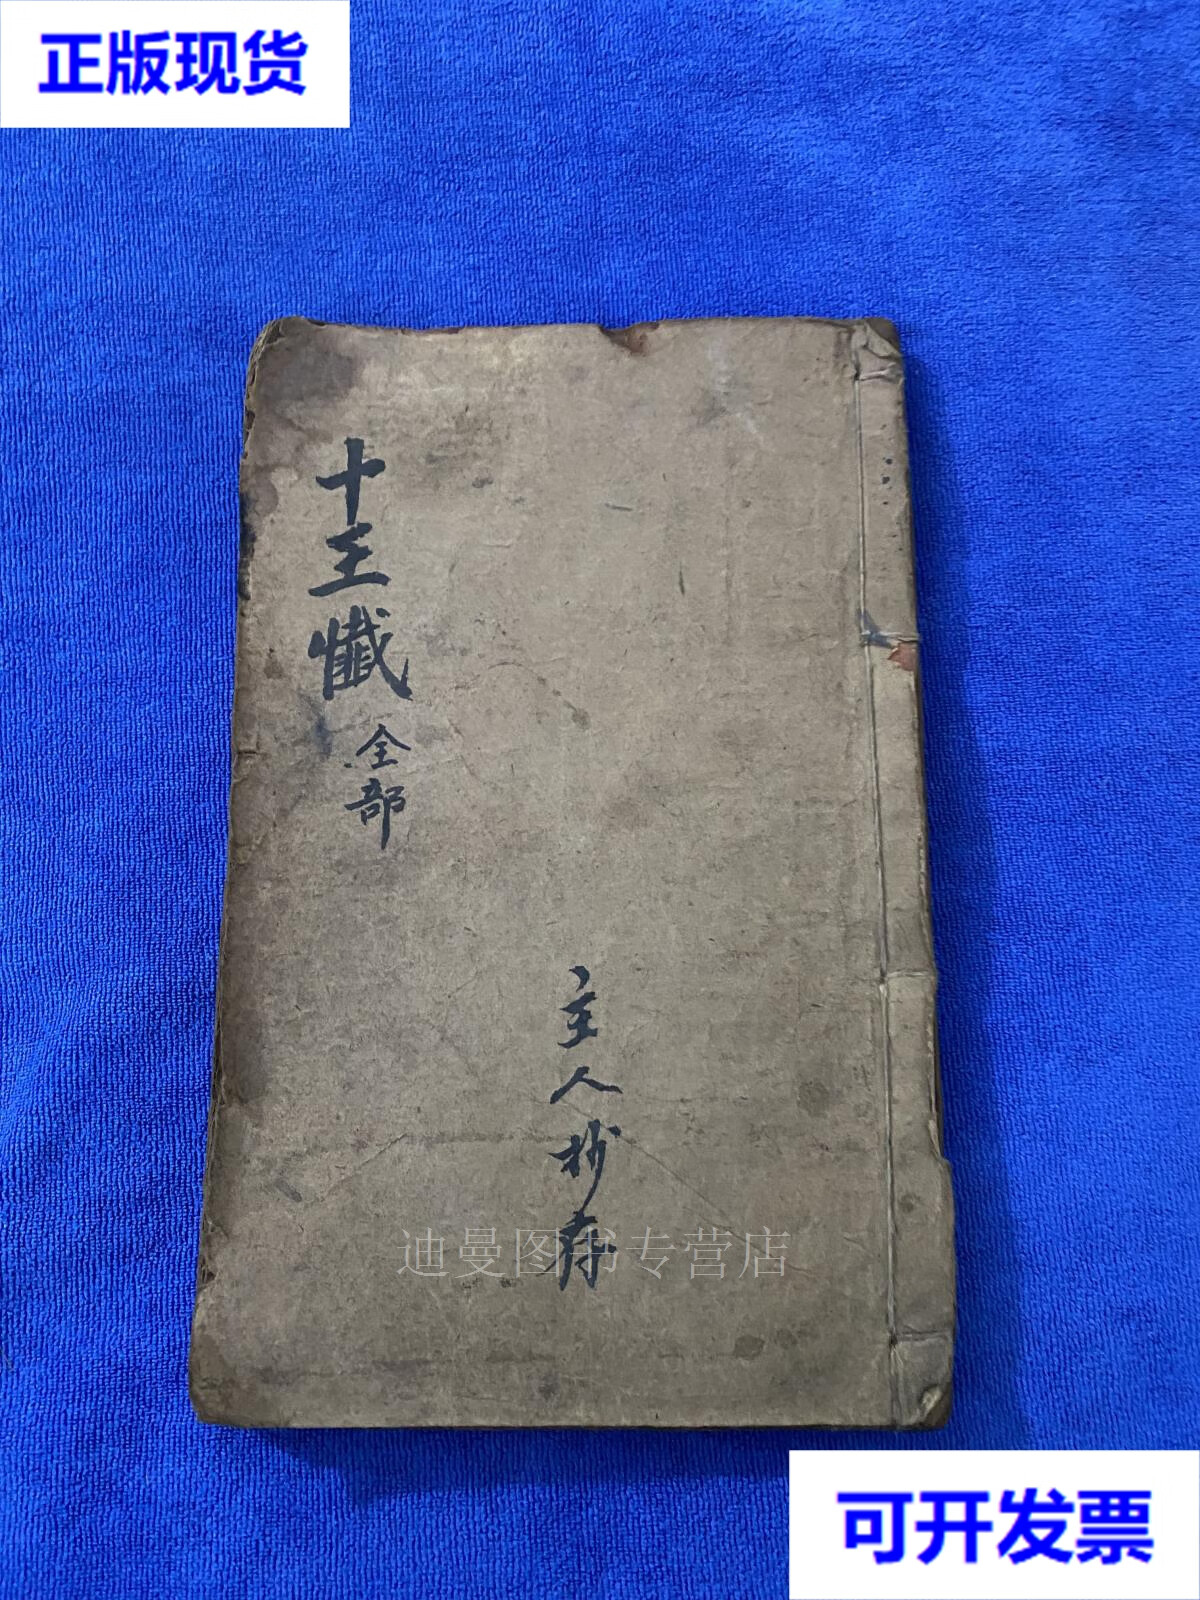 正版现货
十王懺
全部
主人抄存
迪曼图书专营店
可开发票